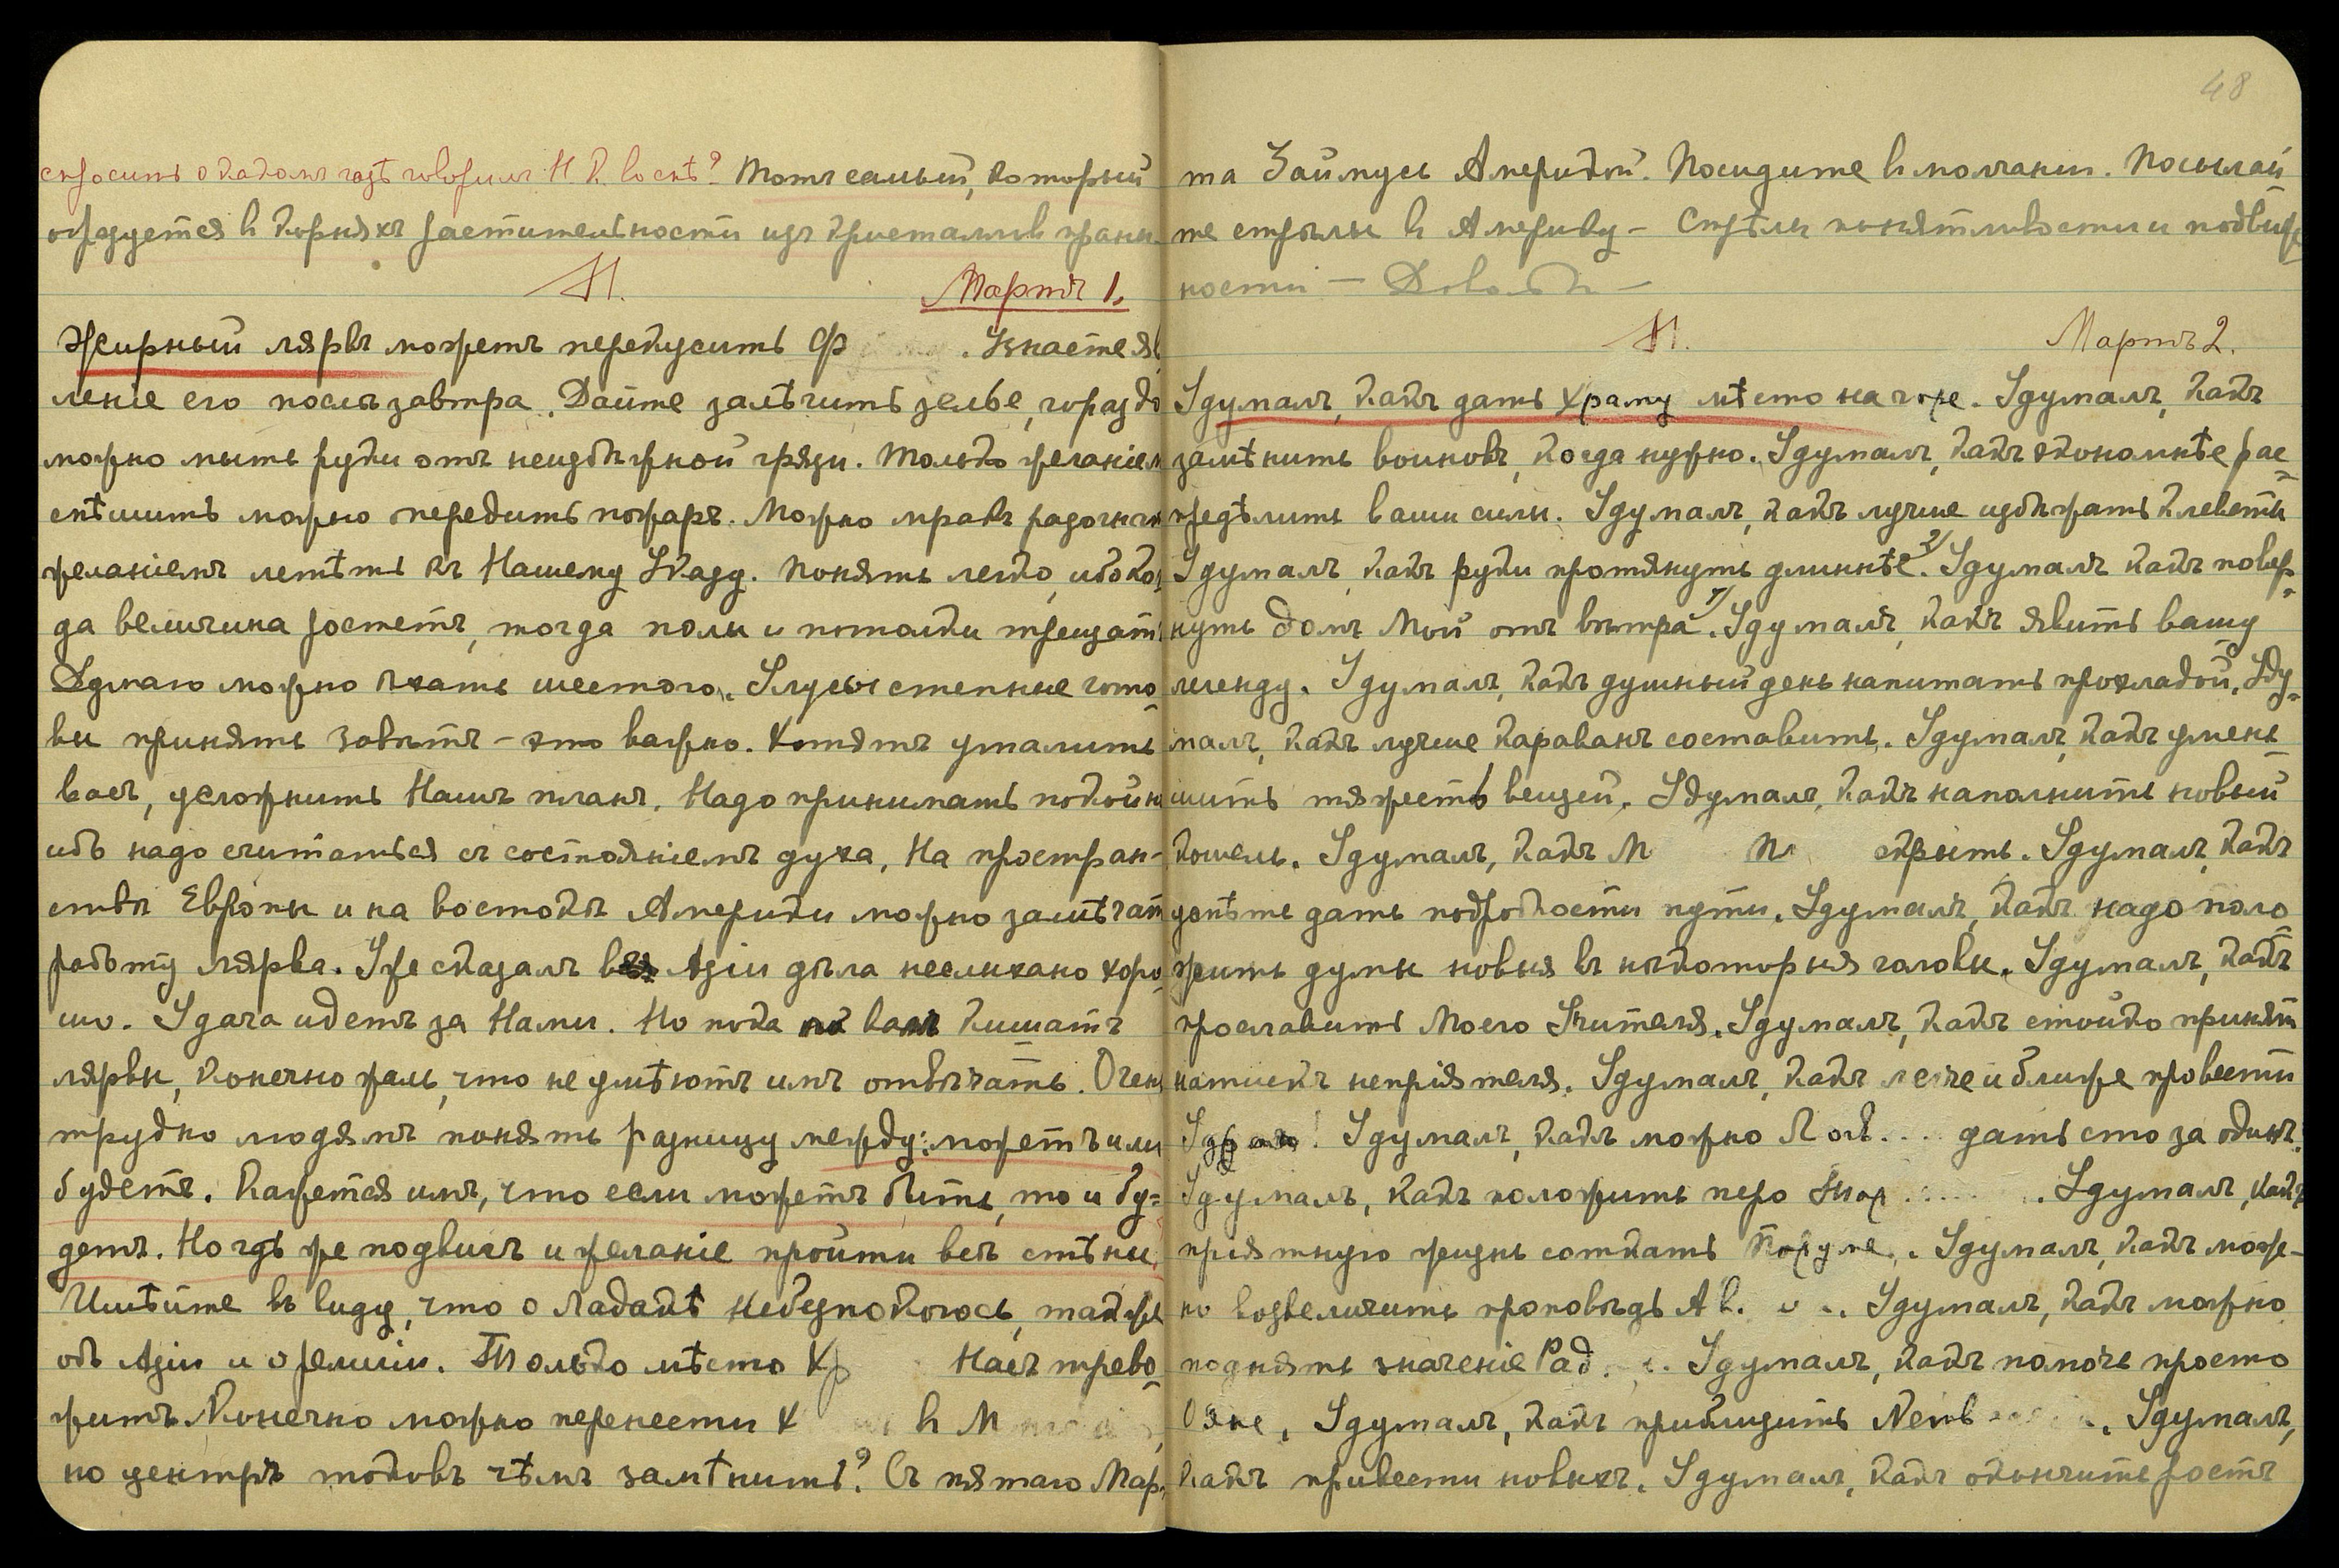 спросить о какомъ газѣ говорилъ Н. К. во снѣ? Тотъ самый, который
образуется в корняхъ растительности изъ кристаллов гранн
Мартъ 1.
Жирный лярвъ можетъ перекусить Ф . Узнаете яв
ленiе его послѣзавтра. Дайте залѣчить зелье, гораздо
можно мыть руки отъ неизбѣжной грязи. Только желанiем
спѣшить можно опередить пожаръ. Можно мракъ разогнать
желанiемъ летѣть къ Нашему Указу. Понять легко, ибо ког
да величина ростетъ, тогда полы и потолки трещатъ
Думаю можно ѣхать шестого. Слухи степные гото-
вы принять завѣтъ – это важно. Хотятъ умалить
васъ, усложнить Нашъ планъ. Надо принимать покойн
ибо надо считаться съ состоянiемъ духа. На простран-
ствѣ Европы и на востокѣ Америки можно замѣчат
работу лярва. Уже сказалъ въ Азiи дѣла неслыхано хоро-
шо. Удача идетъ за Нами. Но пока вами кишатъ
лярвы, конечно жаль, что не умѣютъ имъ отвѣчать. Очен
трудно людямъ понять разницу между: можетъ или
будетъ. Кажется имъ, что если можетъ быть, то и бу-
детъ. Но гдѣ же подвигъ и желанiе пройти всѣ стѣны.
Имѣйте въ виду, что о Ладакѣ не безпокоюсь, также
об Азiи и о религiи. Только мѣсто Хр Насъ трево-
житъ. Конечно можно перенести Х в М
но центръ токовъ чѣмъ замѣнить? Съ пятаго Мар-
48
та Займусь Америкой. Посидите в молчанiи. Посылай
те стрѣлы в Америку – Стрѣлы понятливости и подвиж
ности – Довольно –
Мартъ 2.
Удумалъ, какъ дать храму мѣсто на горе. Удумалъ, какъ
замѣнить воиновъ, когда нужно. Удумалъ, какъ экономнѣе рас-
предѣлить ваши силы. Удумалъ, какъ лучше избѣжать клеветы
Удумалъ, какъ руки протянуть длиннѣе. Удумалъ какъ повер-
нуть домъ Мой отъ вѣтра. Удумалъ, какъ явить вашу
легенду. Удумалъ, какъ душный день напитать прохладой. Уду-
малъ, какъ лучше караванъ составить. Удумалъ, какъ умень
шить тяжесть вещей. Удумалъ, какъ наполнить новый
кошель. Удумалъ, какъ М М скрыть. Удумалъ, какъ
успѣть дать подробности пути. Удумалъ, какъ надо поло
жить думы новыя въ нѣкоторыя головы. Удумалъ, какъ
прославить Моего Учителя. Удумалъ, какъ стойко принят
натискъ непрiятеля. Удумалъ, какъ легче и ближе провести
Удумалъ, какъ можно Лог.... дать сто за один.
Удумалъ, какъ положить перо Тар..... . Удумалъ, какъ
прiятную жизнь соткать Поруме. . Удумалъ, какъ мож-
но возвеличить проповѣдь Ав. . Удумалъ, какъ можно
поднять значенiе Рад. . Удумалъ, какъ помочь просто
Ояне. Удумалъ, какъ приблизить . Удумалъ,
какъ привести новыхъ. Удумалъ, какъ окончить ростъ